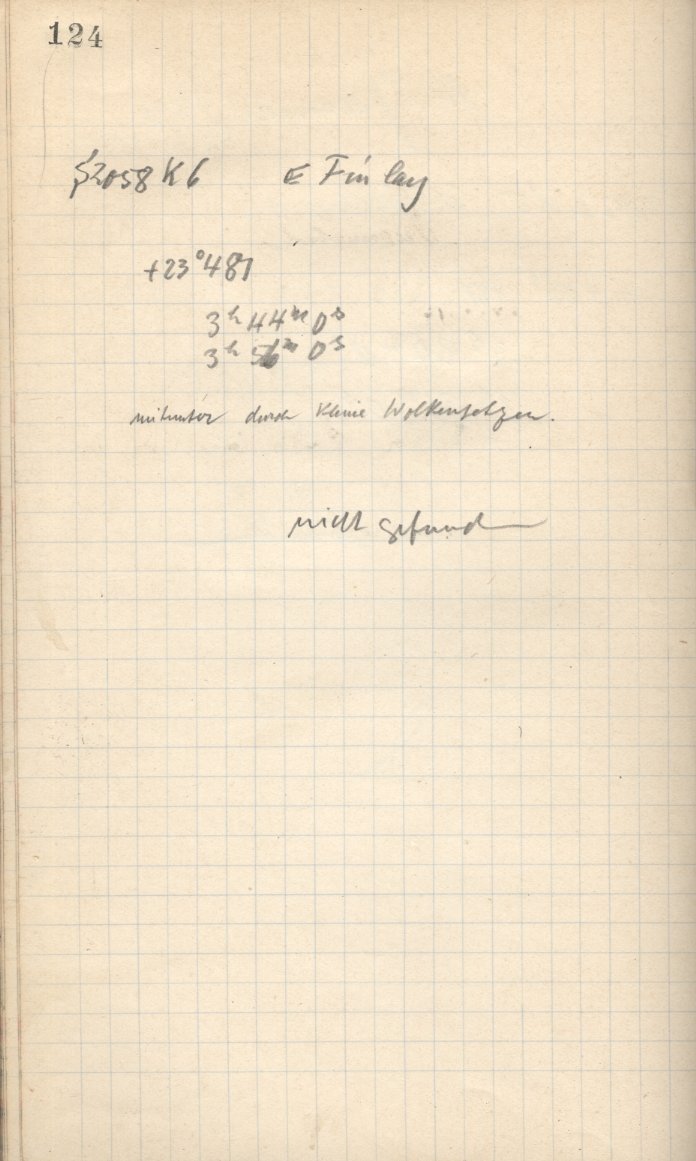 124
2058 K6 E Finlay
+23°481
3h 44m 0s
3h 56m 0s
mitunter durch kleine Wolkenfetzen.
nicht gefunden